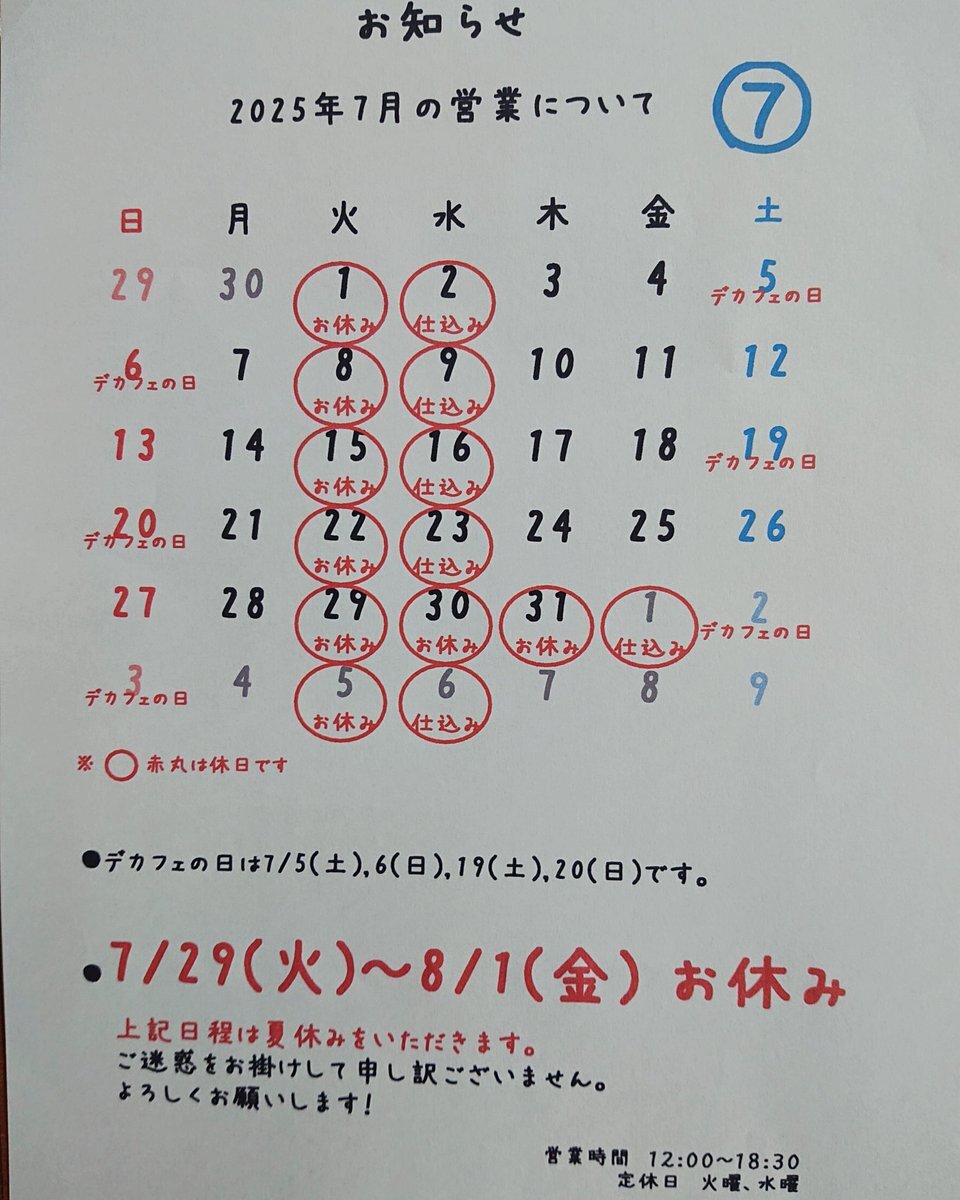 お知らせ
2025年7月の営業について 7
日 月 火 水 木 金 土
29 30 1 2 3 4 5
お休み 仕込み デカフェの日
6 7 8 9 10 11 12
デカフェの日 お休み 仕込み
13 14 15 16 17 18 19
お休み 仕込み デカフェの日
20 21 22 23 24 25 26
デカフェの日 お休み 仕込み
27 28 29 30 31 1 2
お休み お休み お休み 仕込み デカフェの日
3 4 5 6 7 8 9
デカフェの日 お休み 仕込み
※ ○ 赤丸は休日です
●デカフェの日は7/5(土),6(日),19(土),20(日)です。
●7/29(火)〜8/1(金) お休み
上記日程は夏休みをいただきます。
ご迷惑をお掛けして申し訳ございません。
よろしくお願いします!
営業時間 12:00〜18:30
定休日 火曜、水曜